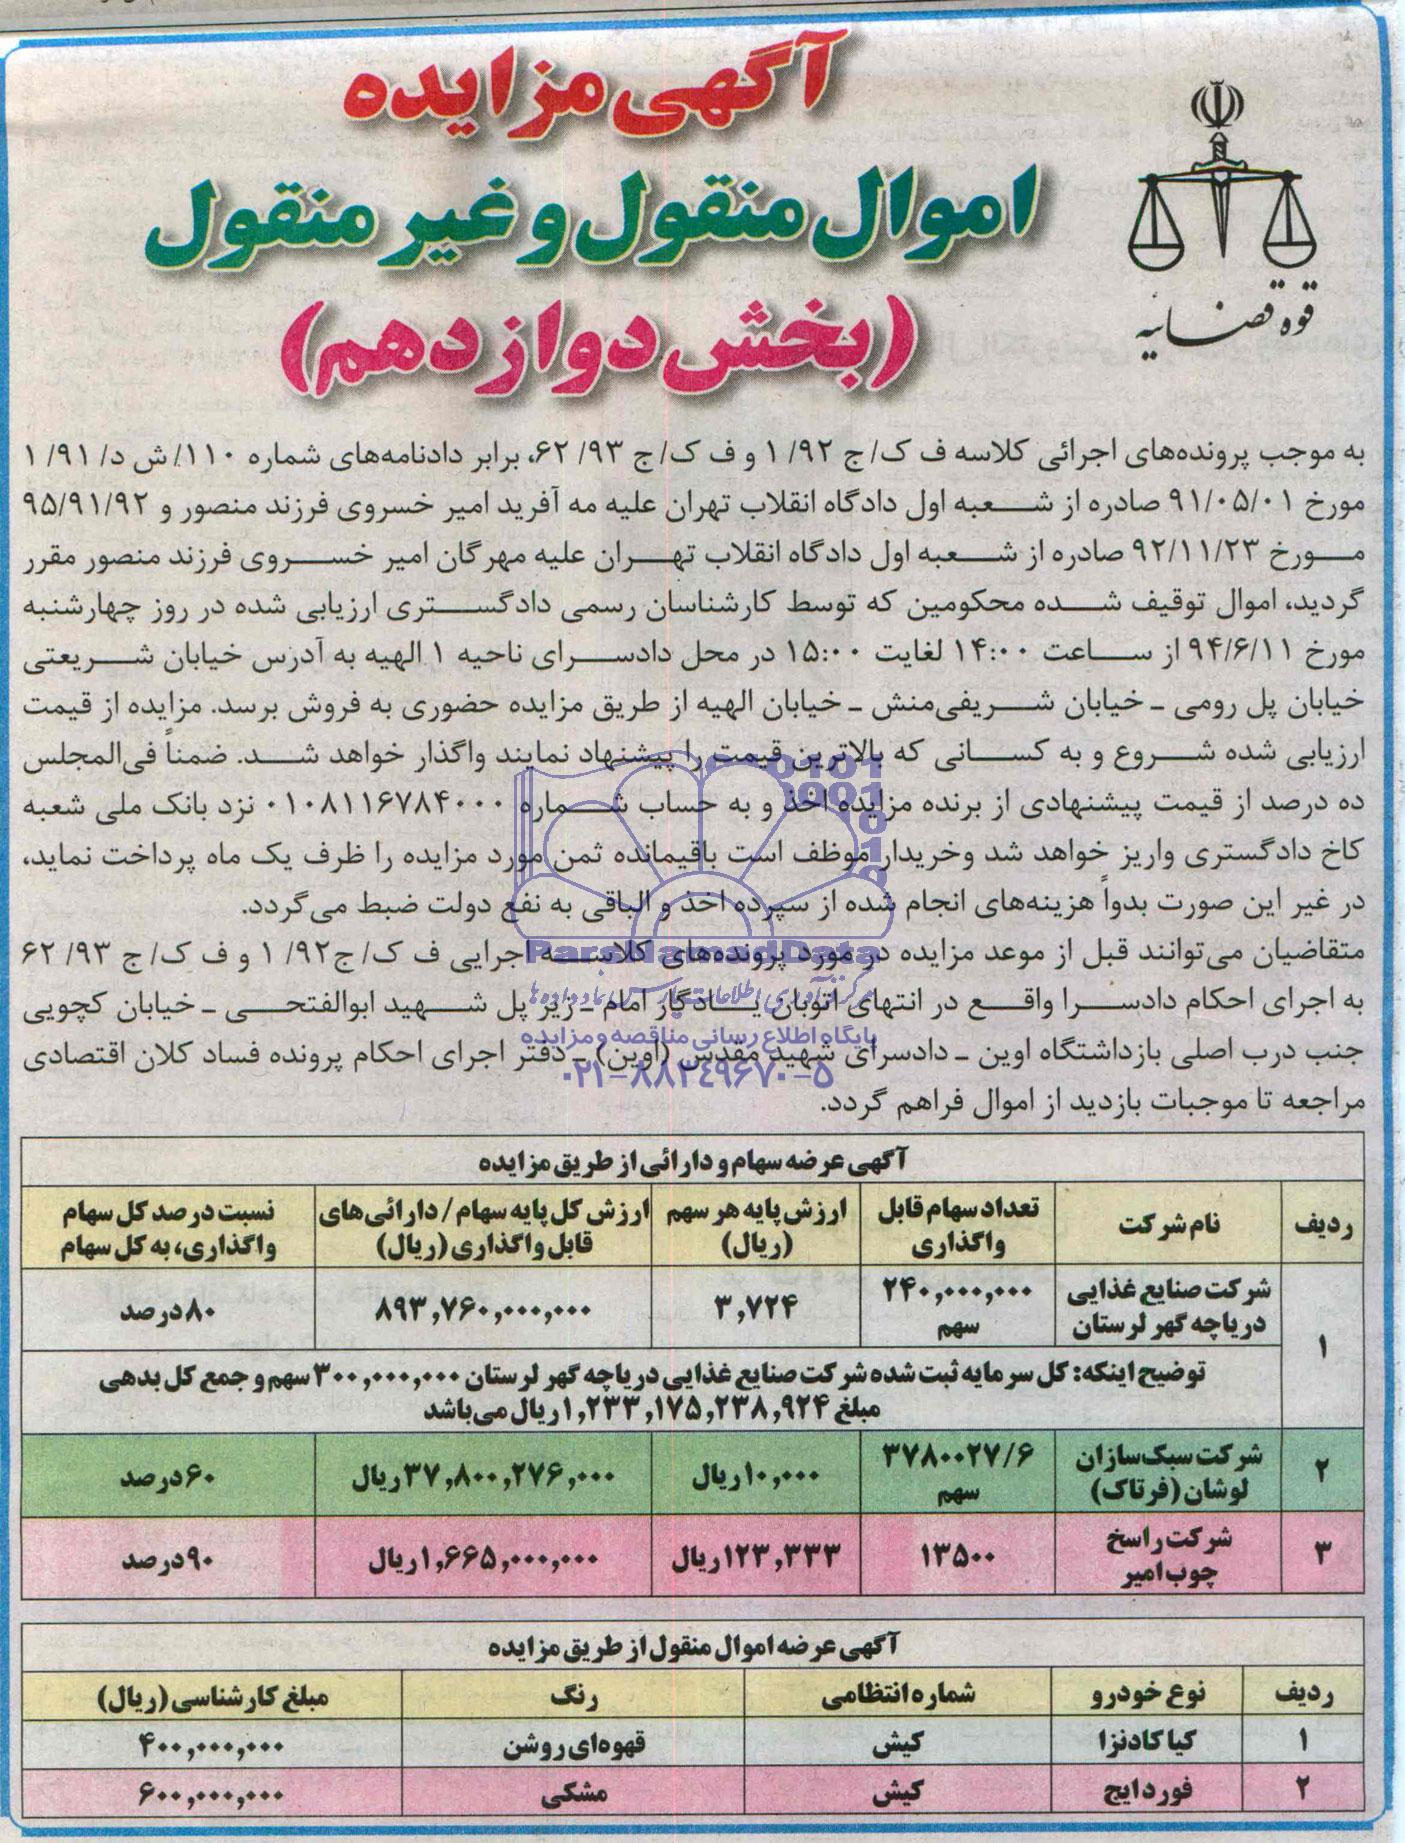 آگهی مزایده
اموال منقول و غیر منقول
(بخش دوازدهم)
قوه قضاییه
به موجب پرونده‌های اجرائی کلاسه ف ک/ ج ۹۲/ ۱ و ف ک/ ج ۹۳/ ۶۲، برابر دادنامه‌های شماره ۱۱۰/ ش د/ ۹۱/ ۱
مورخ ۹۱/۰۵/۰۱ صادره از شعبه اول دادگاه انقلاب تهران علیه مه آفرید امیر خسروی فرزند منصور و ۹۵/۹۱/۹۲
مورخ ۹۲/۱۱/۲۳ صادره از شعبه اول دادگاه انقلاب تهران علیه مهرگان امیر خسروی فرزند منصور مقرر
گردید، اموال توقیف شده محکومین که توسط کارشناسان رسمی دادگستری ارزیابی شده در روز چهارشنبه
مورخ ۹۴/۶/۱۱ از ساعت ۱۴:۰۰ لغایت ۱۵:۰۰ در محل دادسرای ناحیه ۱ الهیه به آدرس خیابان شریعتی
خیابان پل رومی ـ خیابان شریفی‌منش ـ خیابان الهیه از طریق مزایده حضوری به فروش برسد. مزایده از قیمت
ارزیابی شده شروع و به کسانی که بالاترین قیمت را پیشنهاد نمایند واگذار خواهد شد. ضمناً فی‌المجلس
ده درصد از قیمت پیشنهادی از برنده مزایده اخذ و به حساب شماره ۰۱۰۸۱۱۶۷۸۴۰۰۰ نزد بانک ملی شعبه
کاخ دادگستری واریز خواهد شد وخریدار موظف است باقیمانده ثمن مورد مزایده را ظرف یک ماه پرداخت نماید،
در غیر این صورت بدواً هزینه‌های انجام شده از سپرده اخذ و الباقی به نفع دولت ضبط می‌گردد.
متقاضیان می‌توانند قبل از موعد مزایده در مورد پرونده‌های کلاسه اجرایی ف ک/ ج۹۲/ ۱ و ف ک/ ج ۹۳/ ۶۲
به اجرای احکام دادسرا واقع در انتهای اتوبان یادگار امام ـ زیر پل شهید ابوالفتحی ـ خیابان کچویی
جنب درب اصلی بازداشتگاه اوین ـ دادسرای شهید مقدس (اوین) ـ دفتر اجرای احکام پرونده فساد کلان اقتصادی
مراجعه تا موجبات بازدید از اموال فراهم گردد.
ParsNamadData
مرکز فرآوری اطلاعات پارس نماد داده‌ها
پایگاه اطلاع رسانی مناقصه و مزایده
۰۲۱-۸۸۳۴۹۶۷۰-۵
آگهی عرضه سهام و دارائی از طریق مزایده
ردیف نام شرکت تعداد سهام قابل واگذاری ارزش پایه هر سهم (ریال) ارزش کل پایه سهام / دارائی‌های قابل واگذاری (ریال) نسبت درصد کل سهام واگذاری، به کل سهام
۱ شرکت صنایع غذایی دریاچه گهر لرستان ۲۴۰,۰۰۰,۰۰۰ سهم ۳,۷۲۴ ۸۹۳,۷۶۰,۰۰۰,۰۰۰ ۸۰ درصد
توضیح اینکه: کل سرمایه ثبت شده شرکت صنایع غذایی دریاچه گهر لرستان ۳۰۰,۰۰۰,۰۰۰ سهم و جمع کل بدهی
مبلغ ۱,۲۳۳,۱۷۵,۲۳۸,۹۲۴ ریال می‌باشد
۲ شرکت سبک‌سازان لوشان (فرتاک) ۳۷۸۰۰۲۷/۶ سهم ۱۰,۰۰۰ ریال ۳۷,۸۰۰,۲۷۶,۰۰۰ ریال ۶۰ درصد
۳ شرکت راسخ چوب امیر ۱۳۵۰۰ ۱۲۳,۳۳۳ ریال ۱,۶۶۵,۰۰۰,۰۰۰ ریال ۹۰ درصد
آگهی عرضه اموال منقول از طریق مزایده
ردیف نوع خودرو شماره انتظامی رنگ مبلغ کارشناسی (ریال)
۱ کیا کادنزا کیش قهوه‌ای روشن ۴۰۰,۰۰۰,۰۰۰
۲ فورد ایج کیش مشکی ۶۰۰,۰۰۰,۰۰۰